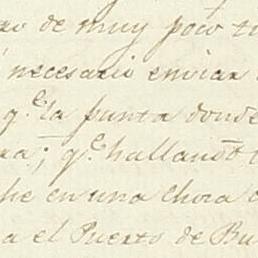 de muy poco
necesario enviar
q.e la punta donde
; q.e halland
en una Chora
a el Puerto de Bu